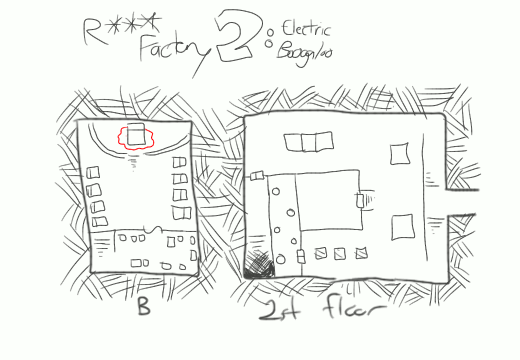 R***
Factory 2:
Electric
Boogaloo
B
2st floor